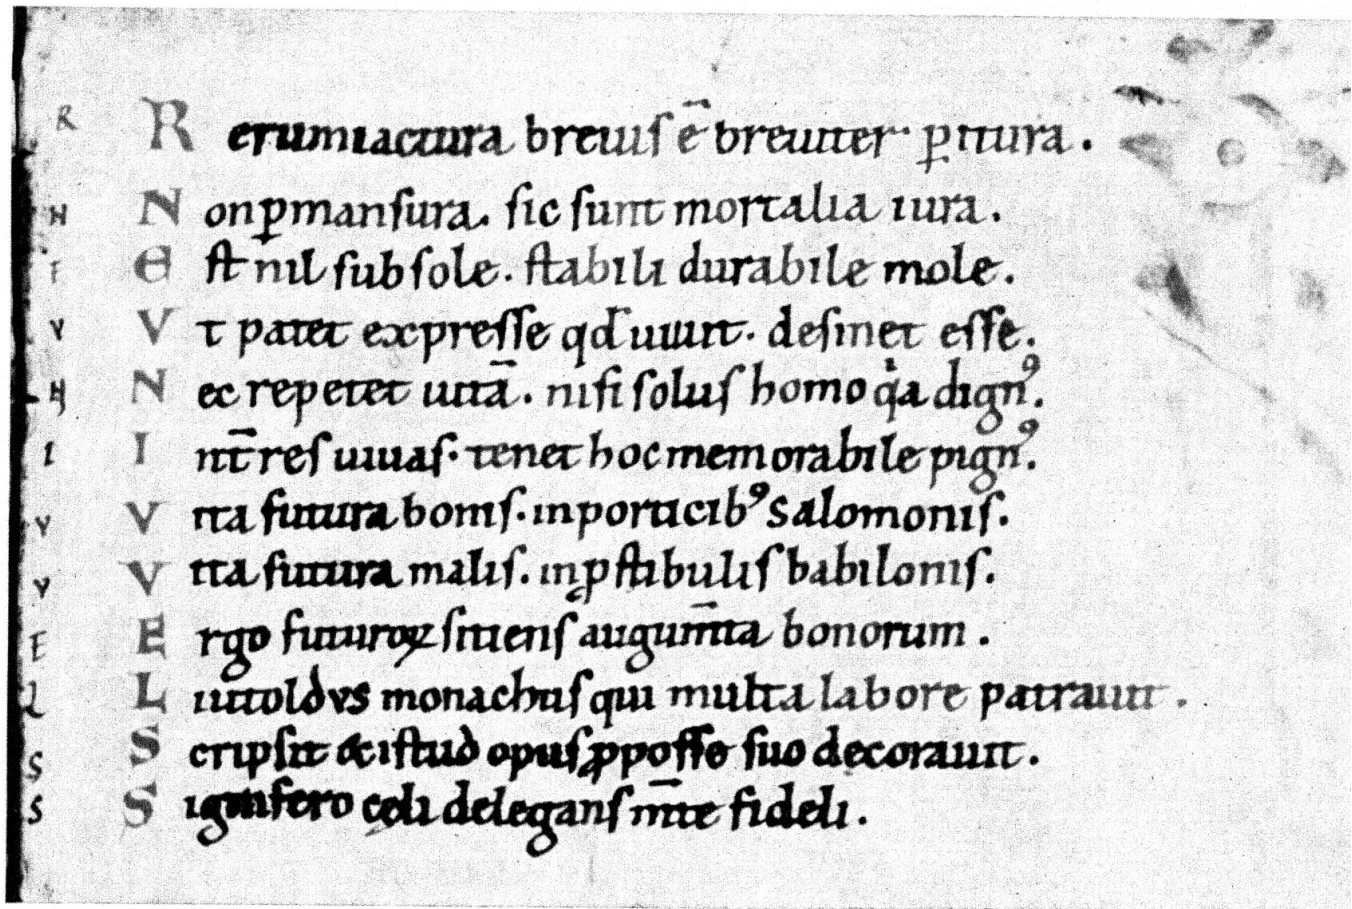 R R erum iactura breuis ē breuiter ꝑitura.
N N on ꝑmansura. sic sunt mortalia iura.
E E st nil sub sole. stabili durabile mole.
V V t patet expresse qđ uiuit. desinet esse.
N N ec repetet uitā. nisi solus homo qa dignꝰ.
I I nt̄ res uiuas. tenet hoc memorabile pignꝰ.
V V ita futura bonis. in porticibꝰ Salomonis.
V V ita futura malis. in ꝓstibulis babilonis.
E E rgo futuroꝝ sitiens augum̄ta bonorum.
L L iutoldvs monachus qui multa labore patrauit.
S S cripsit & istud opus ꝓ posse suo decorauit.
S S ignifero cęli delegans m̄te fideli.